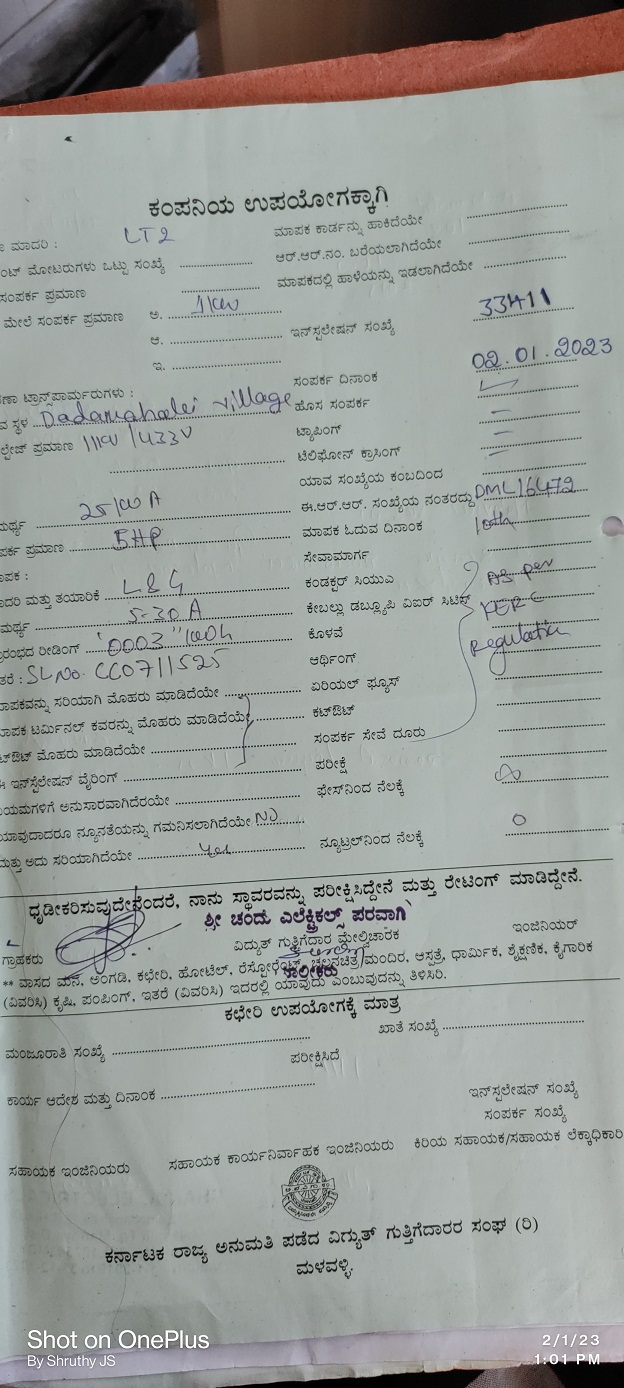 ಕಂಪನಿಯ ಉಪಯೋಗಕ್ಕಾಗಿ
ಮಾದರಿ : LT2 ಮಾಪಕ ಕಾರ್ಡನ್ನು ಹಾಕಿದೆಯೇ
ಮೋಟರುಗಳು ಒಟ್ಟು ಸಂಖ್ಯೆ ಆರ್.ಆರ್.ನಂ. ಬರೆಯಲಾಗಿದೆಯೇ
ಸಂಪರ್ಕ ಪ್ರಮಾಣ ಮಾಪಕದಲ್ಲಿ ಹಾಳೆಯನ್ನು ಇಡಲಾಗಿದೆಯೇ
ಮೇಲೆ ಸಂಪರ್ಕ ಪ್ರಮಾಣ ಅ. 1KW
ಆ. ಇನ್‌ಸ್ಟಲೇಷನ್ ಸಂಖ್ಯೆ 33411
ಇ.
ಸಂಪರ್ಕ ದಿನಾಂಕ 02.01.2023
ಟ್ರಾನ್ಸ್‌ಪಾರ್ಮರುಗಳು :
ಸ್ಥಳ Village ಹೊಸ ಸಂಪರ್ಕ
ಪ್ರಮಾಣ 11KV/433V ಟ್ಯಾಪಿಂಗ್
ಟೆಲಿಫೋನ್ ಕ್ರಾಸಿಂಗ್
ಯಾವ ಸಂಖ್ಯೆಯ ಕಂಬದಿಂದ
25 KVA ಈ.ಆರ್.ಆರ್. ಸಂಖ್ಯೆಯ ನಂತರದ್ದು DML16472
ಪ್ರಮಾಣ 5HP ಮಾಪಕ ಓದುವ ದಿನಾಂಕ
ಸೇವಾಮಾರ್ಗ
ಮತ್ತು ತಯಾರಿಕೆ L&G ಕಂಡಕ್ಟರ್ ಸಿಯುಎ As per
5-30 A ಕೇಬಲ್ಲು ಡಬ್ಲ್ಯೂಪಿ ವಿಐರ್ ಸಿಟಿಸ್ KERC
ರೀಡಿಂಗ್ "0003" kwh ಕೊಳವೆ Regulation
SL No. CC0711525 ಆರ್ಥಿಂಗ್
ಸರಿಯಾಗಿ ಮೊಹರು ಮಾಡಿದೆಯೇ ಏರಿಯಲ್ ಫ್ಯೂಸ್
ಟರ್ಮಿನಲ್ ಕವರನ್ನು ಮೊಹರು ಮಾಡಿದೆಯೇ ಕಟ್‌ಔಟ್
ಮೊಹರು ಮಾಡಿದೆಯೇ ಸಂಪರ್ಕ ಸೇವೆ ದೂರು
ಇನ್‌ಸ್ಟಲೇಷನ್ ವೈರಿಂಗ್ ಪರೀಕ್ಷೆ
ಅನುಸಾರವಾಗಿದೆಯೇ ಫೇಸ್‌ನಿಂದ ನೆಲಕ್ಕೆ ∞
ಯಾವುದಾದರೂ ನ್ಯೂನತೆಯನ್ನು ಗಮನಿಸಲಾಗಿದೆಯೇ No
ಮತ್ತು ಅದು ಸರಿಯಾಗಿದೆಯೇ Yes ನ್ಯೂಟ್ರಲ್‌ನಿಂದ ನೆಲಕ್ಕೆ 0
ಧೃಡೀಕರಿಸುವುದೇನೆಂದರೆ, ನಾನು ಸ್ಥಾವರವನ್ನು ಪರೀಕ್ಷಿಸಿದ್ದೇನೆ ಮತ್ತು ರೇಟಿಂಗ್ ಮಾಡಿದ್ದೇನೆ.
ಶ್ರೀ ಚಂದು ಎಲೆಕ್ಟ್ರಿಕಲ್ಸ್ ಪರವಾಗಿ
ಗ್ರಾಹಕರು ವಿದ್ಯುತ್ ಗುತ್ತಿಗೆದಾರ ಮೇಲ್ವಿಚಾರಕ ಇಂಜಿನಿಯರ್
ಮಾಲೀಕರು
** ವಾಸದ ಮನೆ, ಅಂಗಡಿ, ಕಛೇರಿ, ಹೋಟೆಲ್, ರೆಸ್ಟೋರೆಂಟ್, ಚಲನಚಿತ್ರ ಮಂದಿರ, ಆಸ್ಪತ್ರೆ, ಧಾರ್ಮಿಕ, ಶೈಕ್ಷಣಿಕ, ಕೈಗಾರಿಕ
(ವಿವರಿಸಿ) ಕೃಷಿ, ಪಂಪಿಂಗ್, ಇತರೆ (ವಿವರಿಸಿ) ಇದರಲ್ಲಿ ಯಾವುದು ಎಂಬುವುದನ್ನು ತಿಳಿಸಿರಿ.
ಕಛೇರಿ ಉಪಯೋಗಕ್ಕೆ ಮಾತ್ರ
ಮಂಜೂರಾತಿ ಸಂಖ್ಯೆ ಖಾತೆ ಸಂಖ್ಯೆ
ಪರೀಕ್ಷಿಸಿದೆ
ಕಾರ್ಯ ಆದೇಶ ಮತ್ತು ದಿನಾಂಕ ಇನ್‌ಸ್ಟಲೇಷನ್ ಸಂಖ್ಯೆ
ಸಂಪರ್ಕ ಸಂಖ್ಯೆ
ಸಹಾಯಕ ಇಂಜಿನಿಯರು ಸಹಾಯಕ ಕಾರ್ಯನಿರ್ವಾಹಕ ಇಂಜಿನಿಯರು ಕಿರಿಯ ಸಹಾಯಕ/ಸಹಾಯಕ ಲೆಕ್ಕಾಧಿಕಾರಿ
ಕರ್ನಾಟಕ ರಾಜ್ಯ ಅನುಮತಿ ಪಡೆದ ವಿದ್ಯುತ್ ಗುತ್ತಿಗೆದಾರರ ಸಂಘ (ರಿ)
ಮಳವಳ್ಳಿ.
Shot on OnePlus
By Shruthy JS
2/1/23
1:01 PM